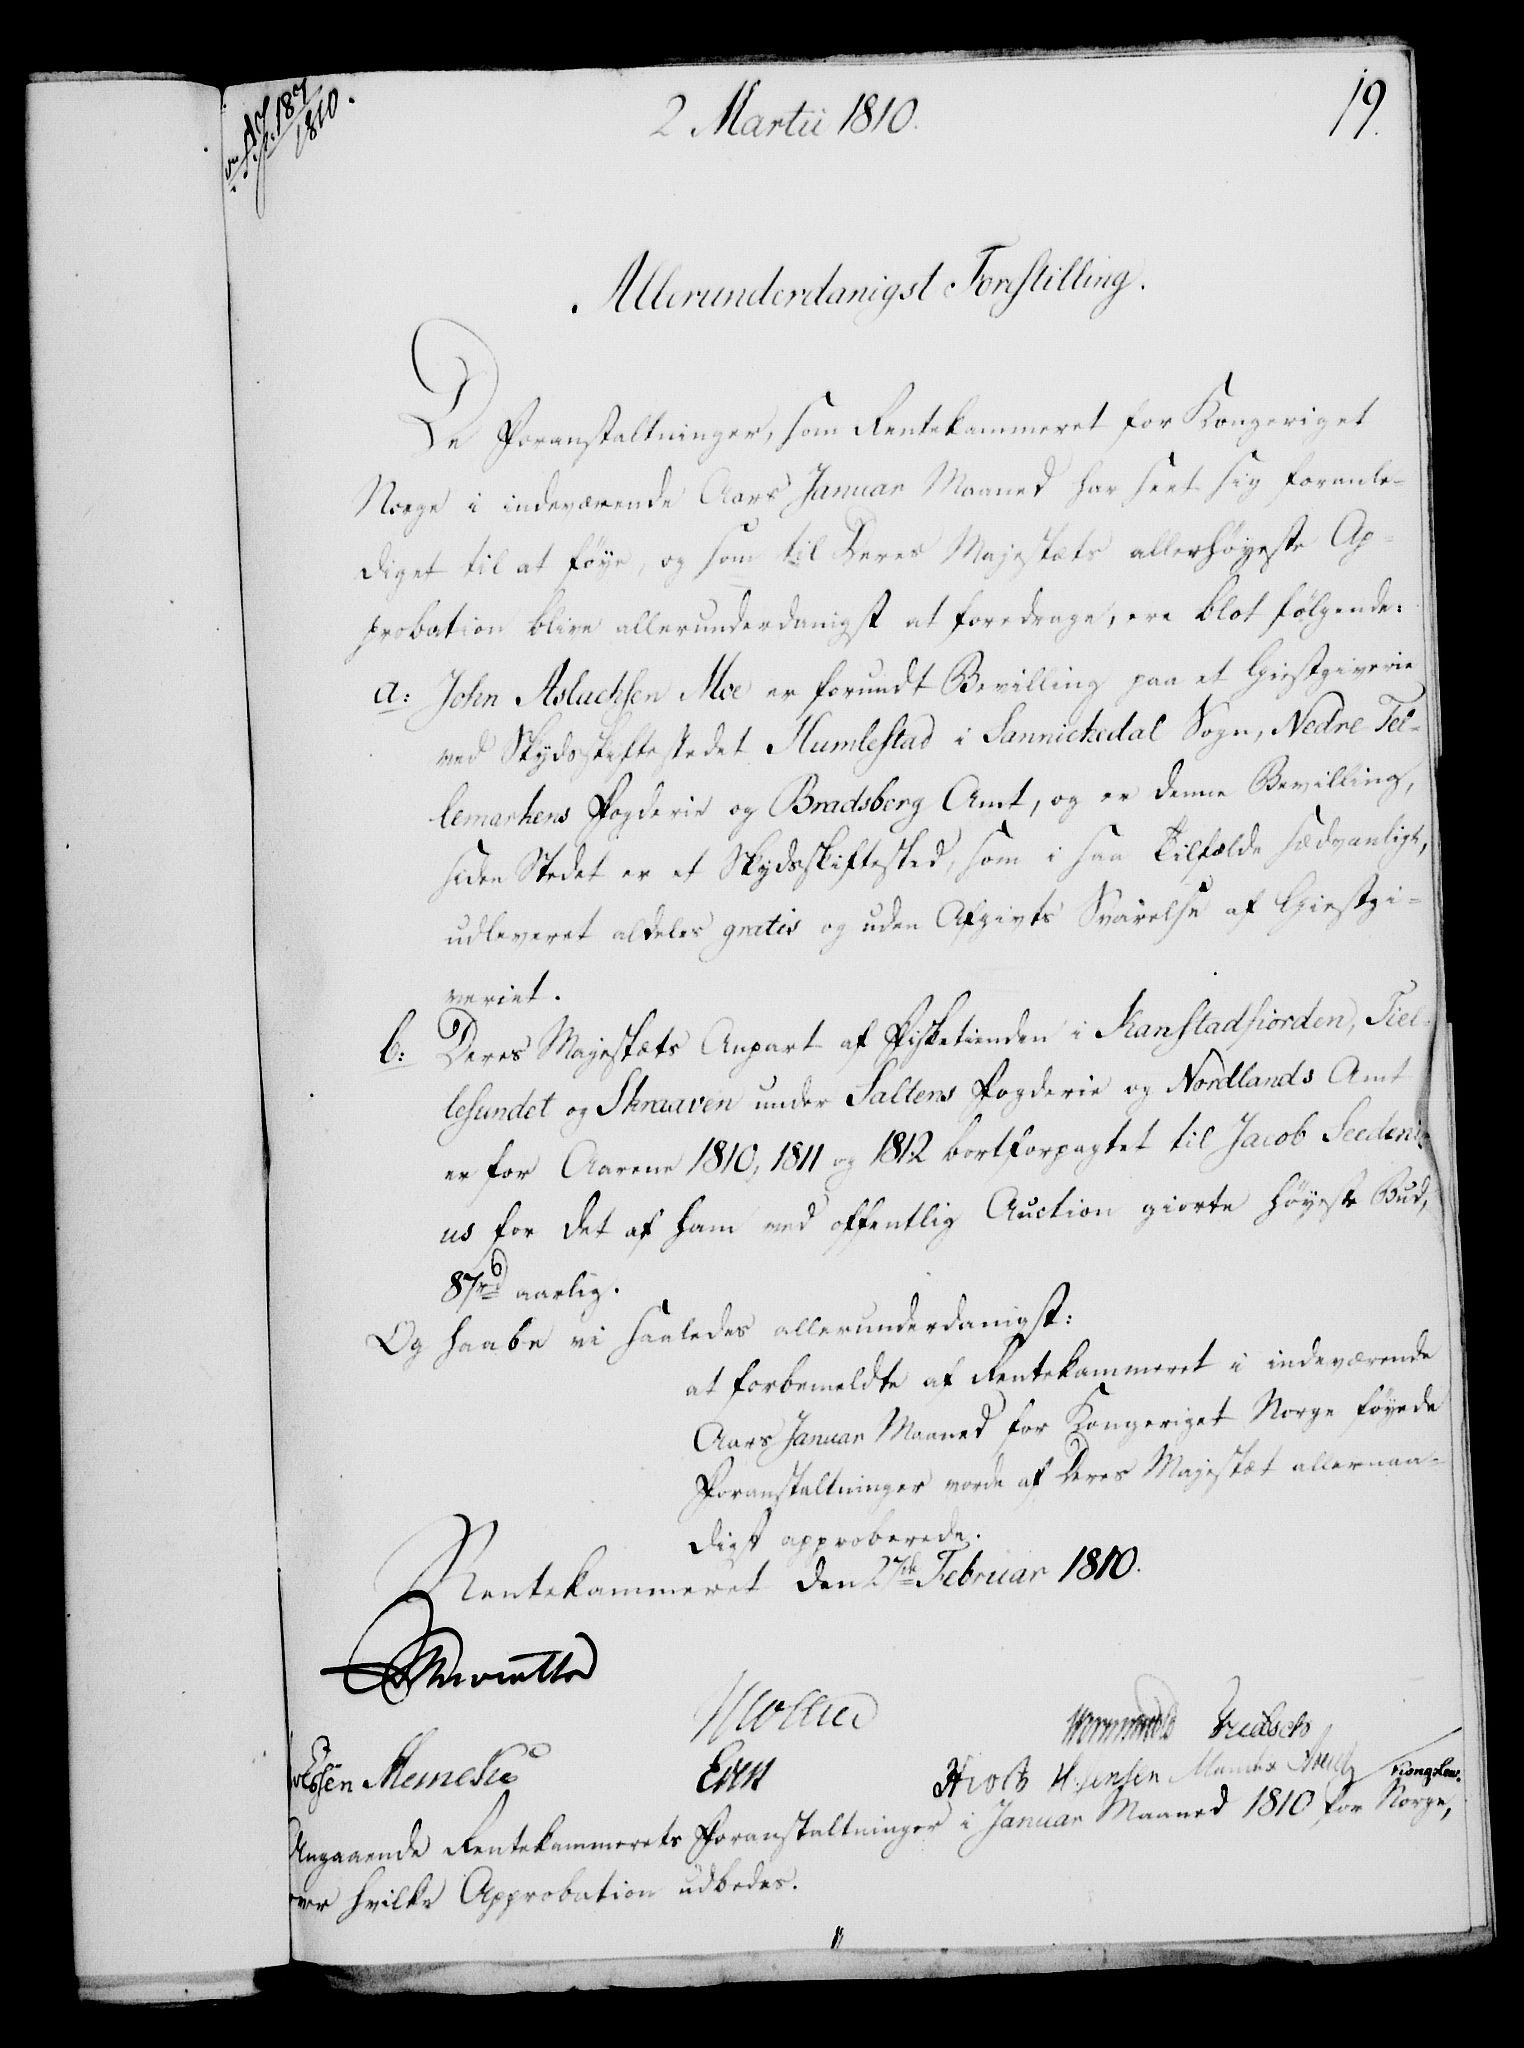 2 Martii 1810.
19.
1810.
Allerunderdanigst Forestilling.
De Foranstaltninger, som Rentekammeret for Kongeriget
Norge i indeværende Aars Januar Maaned har seet sig foranle-
diget til at føye, og som til Deres Majestæts allerhøyeste Ap-
probation blive allerunderdanigst at foredrage, ere blot følgende:
a: John Aslachsen Moe er forundt Bevilling paa et Giestgiverie
ved Skydsskiftestedet Humlestad i Sannickedal Sogn, Nedre Tel-
lemarkens Fogderie og Bradsberg Amt, og er denne Bevilling,
siden Stedet er et Skydsskiftested, som i saa Tilfælde sædvanligt,
udleveret aldeles gratis og uden Afgivts Svarelse af Giestgi-
veriet.
b: Deres Majestæts Anpart af Fisketienden i Kanstadfiorden, Tiel-
lesundet og Skraaven under Saltens Fogderie og Nordlands Amt
er for Aarene 1810, 1811 og 1812 bortforpagtet til Jacob Seedeni-
us for det af ham ved offentlig Auction giorte høyeste Bud,
87 rd aarlig.
Og haabe vi saaledes allerunderdanigst:
at forbemeldte af Rentekammeret i indeværende
Aars Januar Maaned for Kongeriget Norge føyede
Foranstaltninger vorde af Deres Majestæt allernaa-
digst approberede.
Rentekammeret den 27de Februar 1810.
Wormskiold
Holt H. Jensen
Angaaende Rentekammerets Foranstaltninger i Januar Maaned 1810 for Norge,
over hvilke Approbation udbedes.